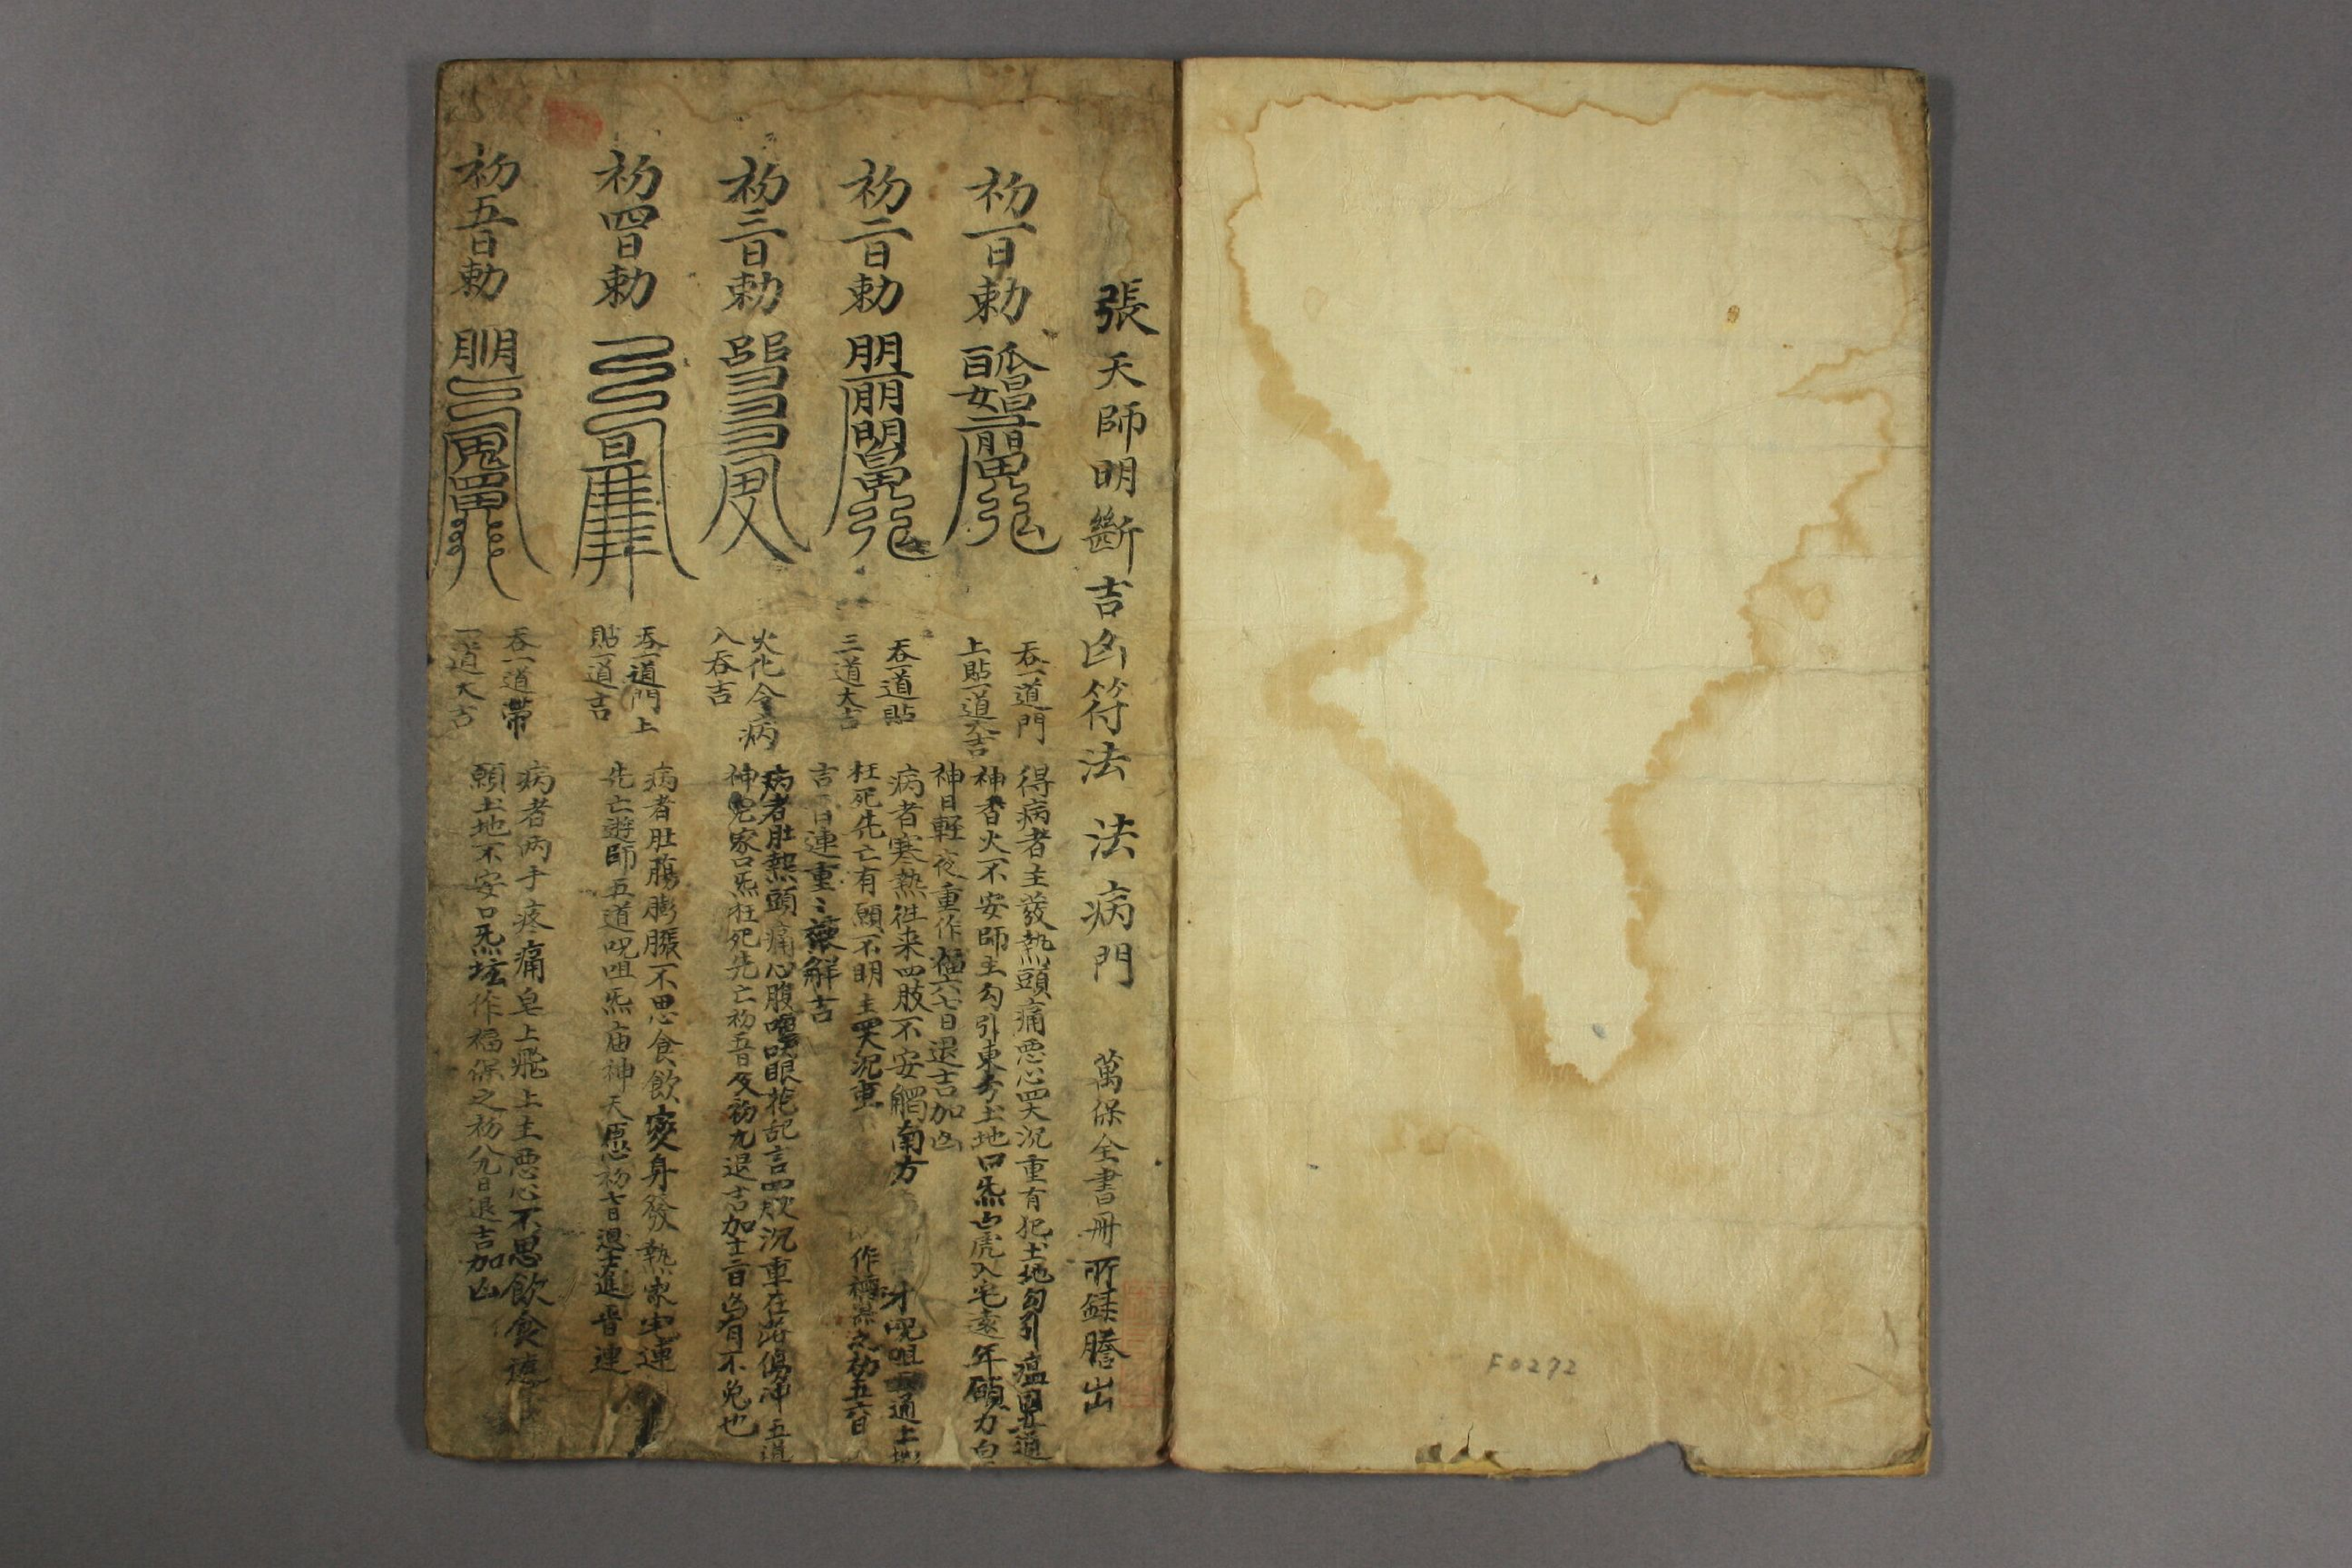 張天師明斷吉凶符法 法病門 萬保全書冊所録謄出
初一日勅
吞一道門
上貼一道大吉
得病者主發熱頭痛悪心四大沉重有犯土地勾引瘟
神香火不安師主勾引東方土地口炁白虎入宅遠年願力
神日輕夜重作福六七日退吉加凶
初二日勅
吞一道貼
三道大吉
病者寒熱往来四肢不安觸南方
呪咀
枉死先亡有願不明主四大沉重 作
之初五六日
吉 日連重〻 解吉
初三日勅
火化令病
人吞吉
病者肚熱頭痛心腹 眼花乱言四肢沉重在 傷冲五道
神 家口炁枉死先亡初五日及初九退吉加十二日凶有不免也
初四日勅
吞一道門上
貼一道吉
病者肚腸膨脹不思食飲變身發熱家宅連
先亡遊師五道呪咀炁庙神天 初七日退
初五日勅
吞一道帶
一道大吉
病者两手疼痛皂上飛上主悪心不思飲食
願土地不安口炁坛作福保之初八九日退吉加凶
F0272